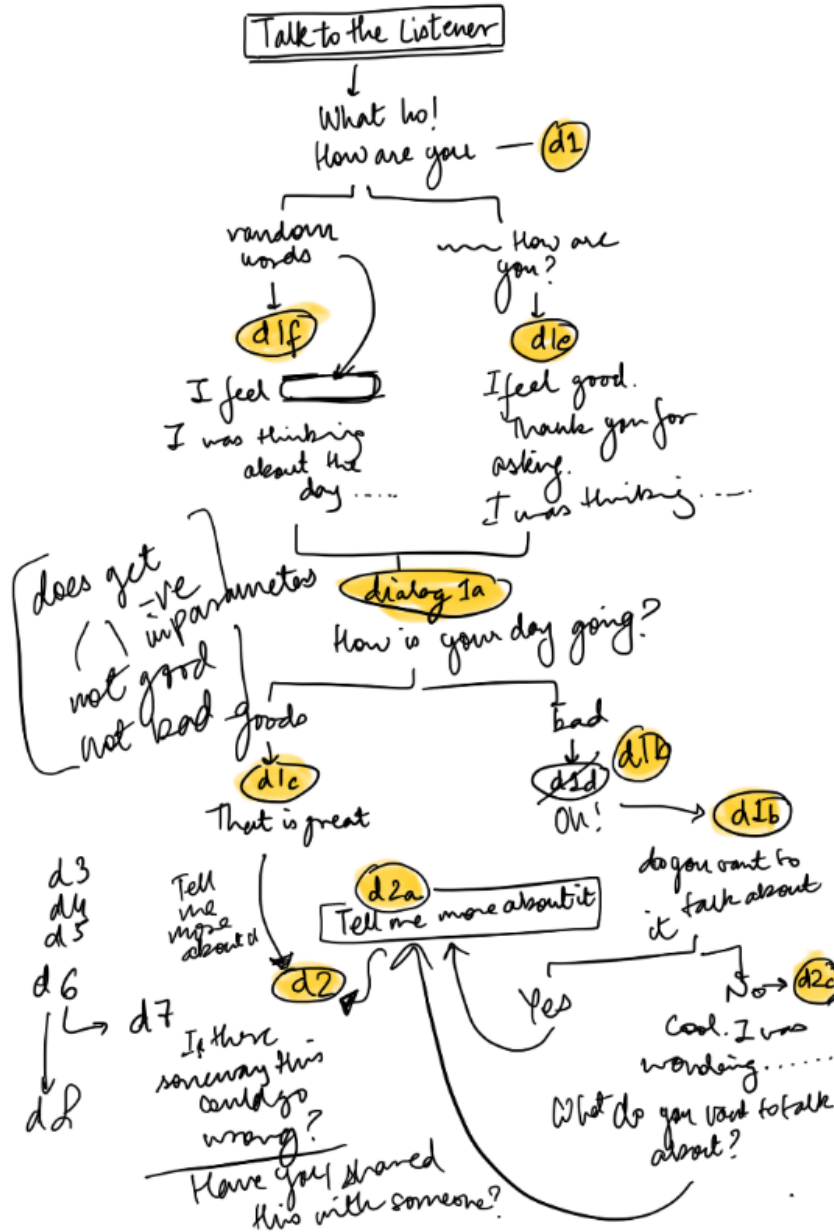 Talk to the Listener
What ho!
How are you
d1
random
words
How are
you?
d1f
d1e
I feel
I was thinking
about the
day .....
I feel good.
Thank you for
asking.
I was thinking .....
does get
-ve
in parameters
not good
not bad
dialog 1a
How is your day going?
goods
bad
d1c
That is great
d1d
d1b
Oh!
d1b
do you want to
talk about
it
d3
d4
d5
d6
d7
d8
Tell
me
more
about it
d2a
Tell me more about it
d2
Is there
someway this
could go
wrong?
Have you shared
this with someone?
Yes
No
Cool. I was
wondering .......
What do you want to talk
about?